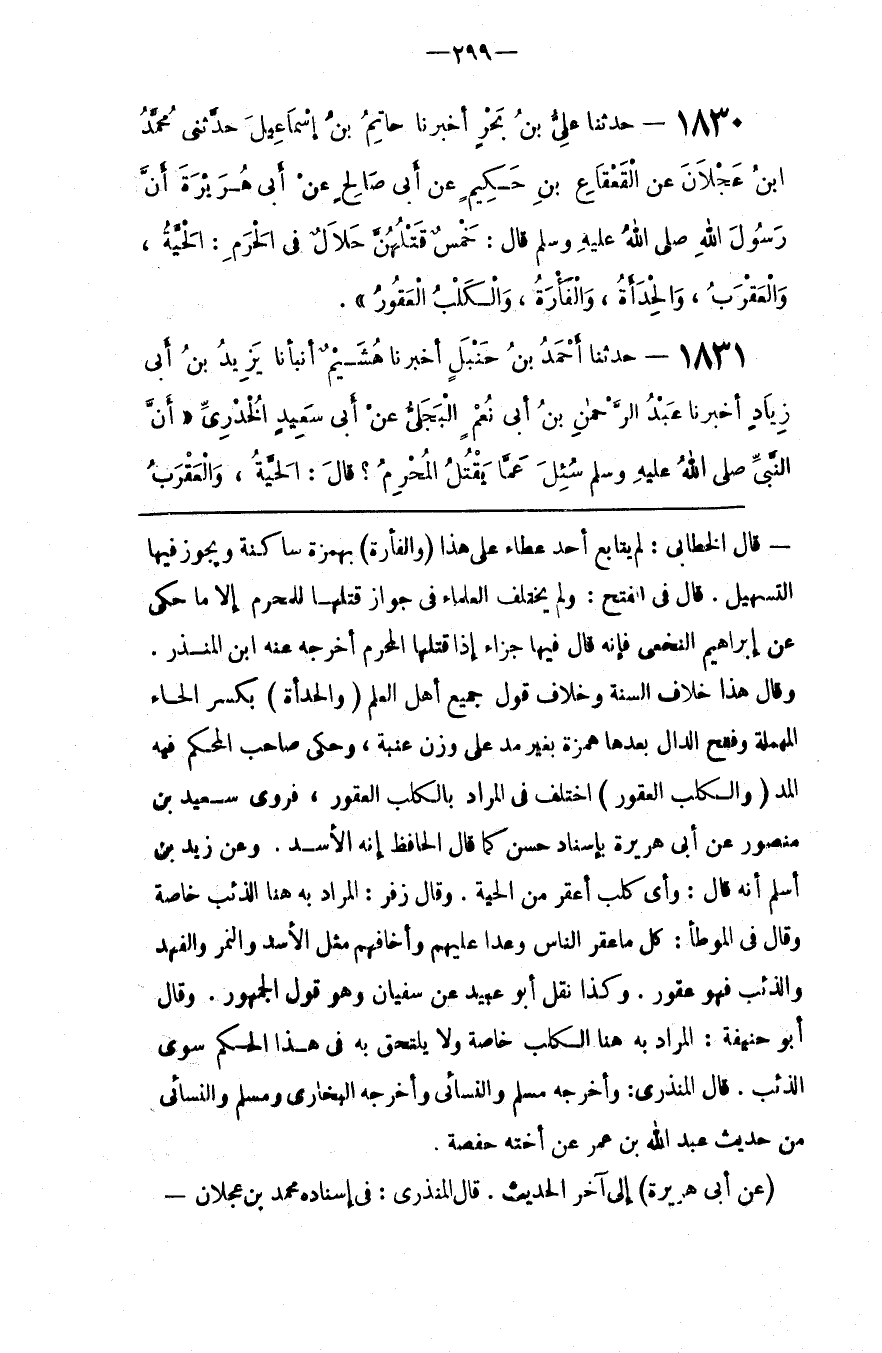 —٢٩٩—
١٨٣٠ — حدثنا عَلِيُّ بنُ بَحْرٍ أخبرنا حاتِمُ بنُ إسْمَاعِيلَ حدَّثنى مُحمَّدُ
ابنُ عَجْلَانَ عن الْقَعْقَاعِ بنِ حَـكِيمٍ عن أَبى صَالِحٍ عنْ أَبى هُـرَيْرَةَ أَنَّ
رَسُولَ اللهِ صلى اللهُ عليهِ وسلم قال : خَمْسٌ قَتْلُهُنَّ حَلاَلٌ فى الْحَرَمِ : الْحَيَّةُ ،
وَالْعَقْرَبُ ، وَالْحِدَأَةُ ، وَالْفَأْرَةُ ، وَالْـكَلْبُ الْعَقُورُ » .
١٨٣١ — حدثنا أَحْمَدُ بنُ حَنْبَلٍ أخبرنا هُشَـيْمٌ أنبأنا يَزِيدُ بنُ أَبى
زِيَادٍ أخبرنا عَبْدُ الرَّحْمنِ بنُ أبى نُعْمٍ الْبَجَلىُّ عنْ أَبى سَعِيدٍ الْخُدْرِىِّ « أَنَّ
النَّبىَّ صلى اللهُ عليهِ وسلم سُئِلَ عَمَّا يَقْتُلُ المُحْرِمُ ؟ قالَ : الْحَيَّةُ ، وَالْعَقْرَبُ
— قال الخطابى : لم يتابع أحد عطاء على هذا (والفأرة) بهمزة ساكنة ويجوز فيها
التسهيل . قال فى الفتح : ولم يختلف العلماء فى جواز قتلهـا للمحرم إلا ما حكى
عن إبراهيم النخعى فإنه قال فيها جزاء إذا قتلها المحرم أخرجه عنه ابن المنـذر .
وقال هذا خلاف السنة وخلاف قول جميع أهل العلم ( والحدأة ) بكسر الحـاء
المهملة وفتح الدال بعدها همزة بغير مد على وزن عنبة ، وحكى صاحب المحكم فيه
المد ( والـكلب العقور ) اختلف فى المراد بالكلب العقور ، فروى سـعيد بن
منصور عن أبى هريرة بإسناد حسن كما قال الحافظ إنه الأسـد . وعن زيد بن
أسلم أنه قال : وأى كلب أعقر من الحية . وقال زفر : المراد به هنا الذئب خاصة
وقال فى الموطأ : كل ماعقر الناس وعدا عليهم وأخافهم مثل الأسد والنمر والفهد
والذئب فهو عقور . وكذا نقل أبو عبيد عن سفيان وهو قول الجمهور . وقال
أبو حنيفة : المراد به هنا الـكلب خاصة ولا يلتحق به فى هـذا الحـكم سوى
الذئب . قال المنذرى: وأخرجه مسلم والنسائى وأخرجه البخارى ومسلم والنسائى
من حديث عبد الله بن عمر عن أخته حفصة .
(عن أبى هريرة) إلى آخر الحديث . قال المنذرى : فى إسناده محمد بن عجلان —